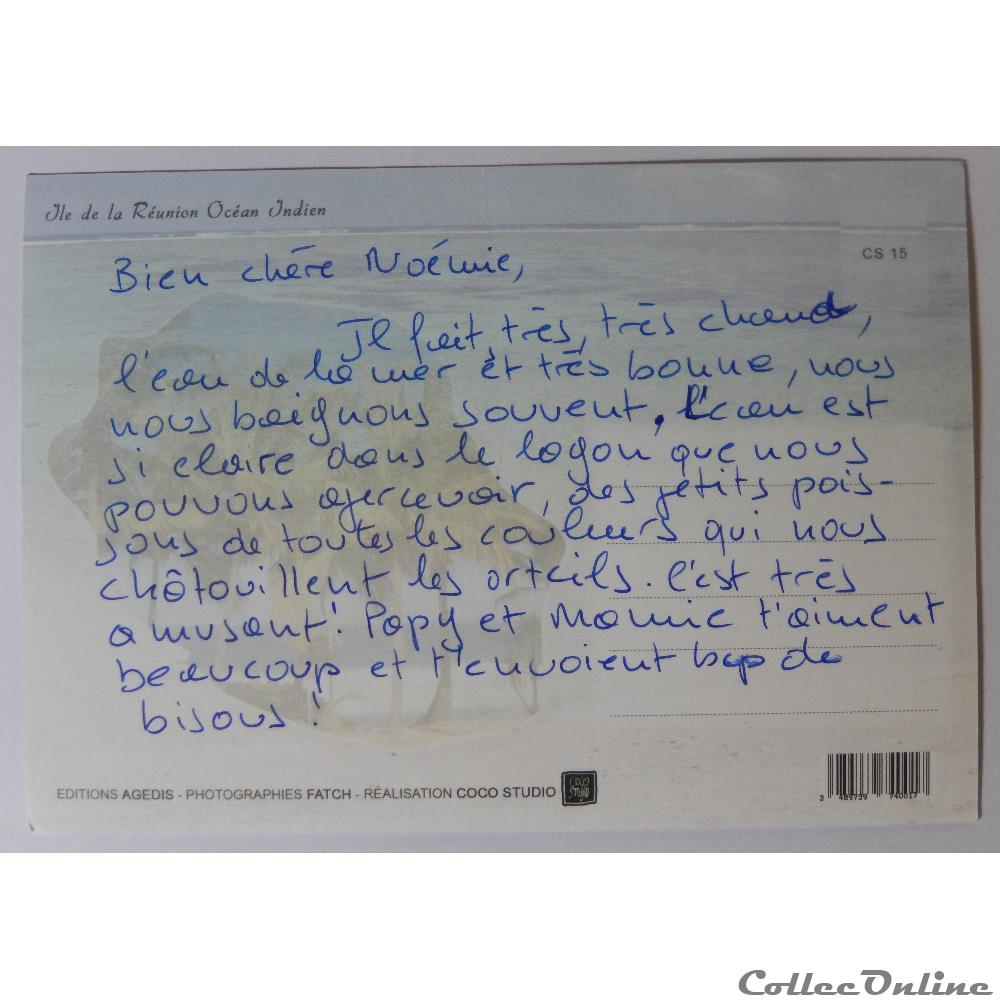 Ile de la Réunion Océan Indien
CS 15
Bien chère Noémie,
Il fait, très, très chaud,
l'eau de la mer et très bonne, nous
nous baignons souvent, l'eau est
si claire dans le lagon que nous
pouvons apercevoir, des petits pois-
sons de toutes les couleurs qui nous
châtouillent les orteils. C'est très
amusant! Papy et Mamie t'aiment
beaucoup et t'envoient bcp de
bisous!
EDITIONS AGEDIS - PHOTOGRAPHIES FATCH - RÉALISATION COCO STUDIO
COCO STUDIO
3 489739 740017
CollecOnline